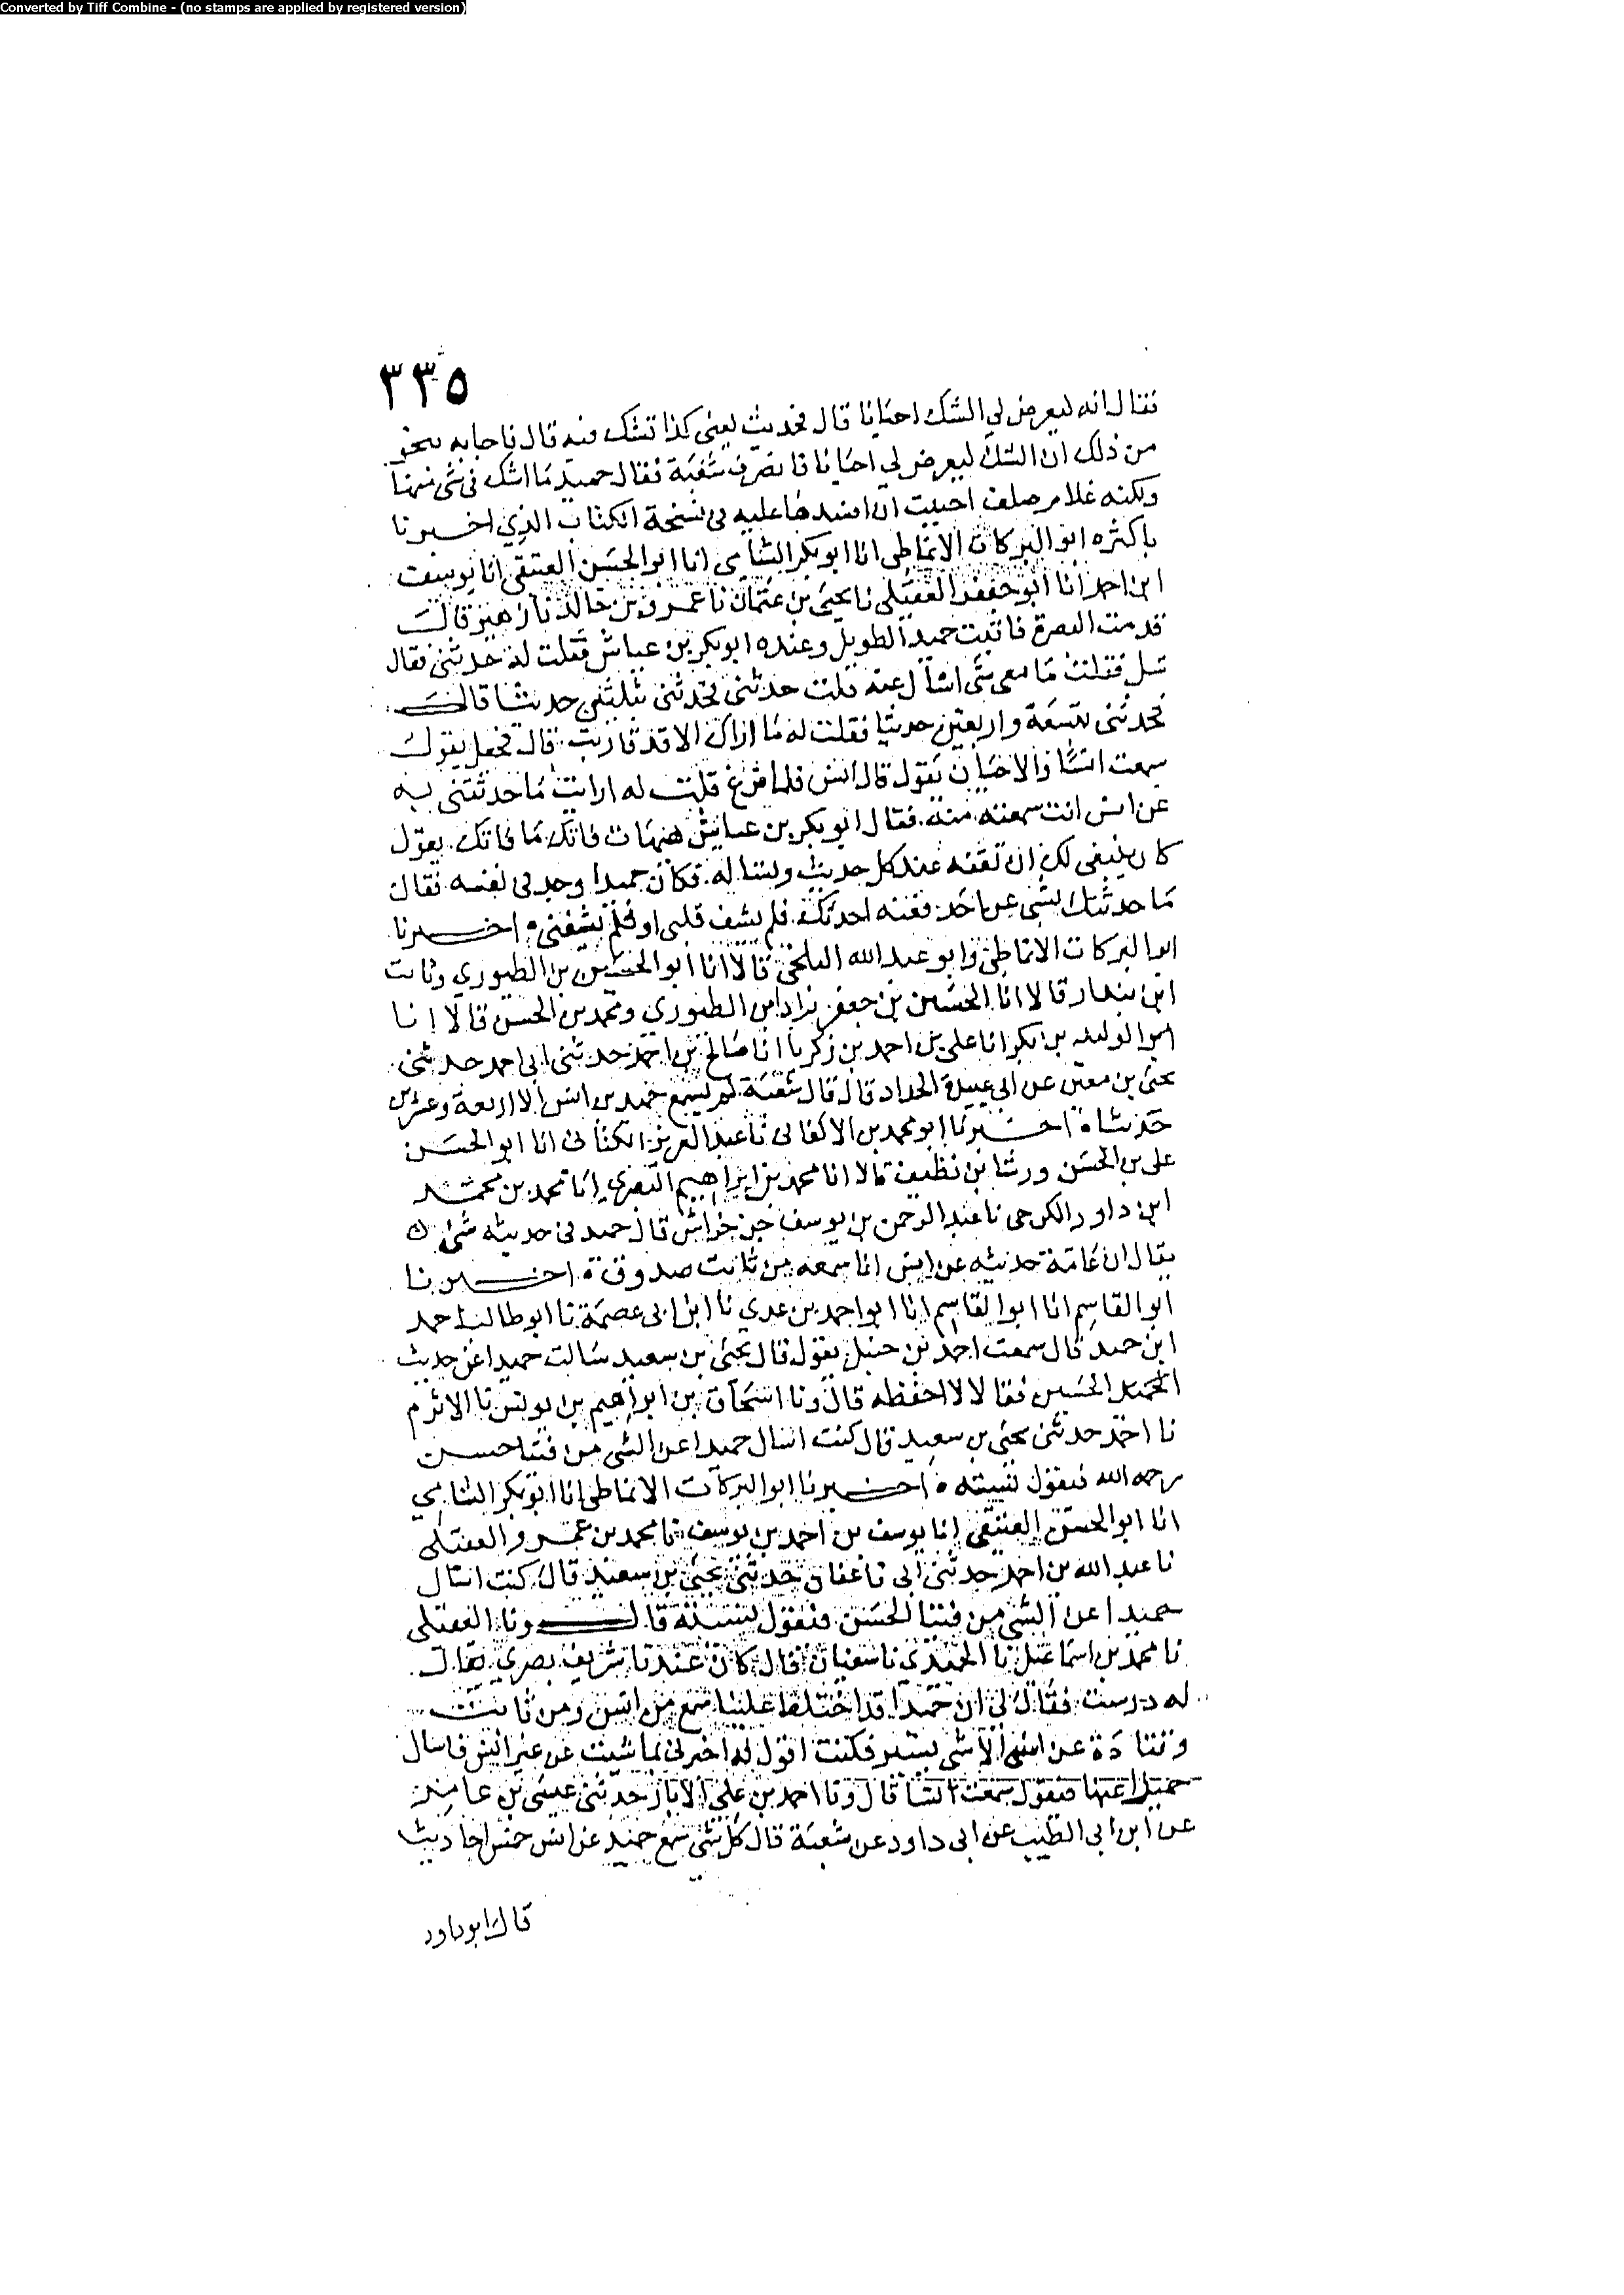 Converted by Tiff Combine - (no stamps are applied by registered version)
٣٣٥
فقال انه ليعرض لي الشك احيانا قال فحديث يعني كذا تشك فيه قال فاجابه بنحو
من ذلك ان الشك ليعرض لي احيانا فانصرف شعبة فقال حميد ما اشك في شي منها
ولكنه غلام صلف احببت ان افسدها عليه في نسخة الكتاب الذي اخبرنا
باكثره ابو البركات الانماطي انا ابو بكر الشامي انا ابو الحسن العتيقي انا يوسف
ابن احمد انا ابو جعفر العقيلي نا يحيى بن عثمان نا عمرو بن خالد نا زهير قال
قدمت البصرة فاتيت حميد الطويل وعنده ابو بكر بن عياش فقلت له حدثني فقال
سل فقلت ما معي شي اسال عنه قلت حدثني فحدثني بثلثين حديثا قال
فحدثني بتسعة واربعين حديثا فقلت له ما اراك الا قد قاربت قال فجعل يقول
سمعت انسا والاحيان يقول قال انس فلما فرغ قلت له ارايت ما حدثتني به
عن انس انت سمعته منه فقال ابو بكر بن عياش هيهات فاتك ما فاتك يقول
كان ينبغي لك ان تقفه عند كل حديث وتساله فكان حميدا وجد في نفسه فقال
ما حدثتك بشي عن احد فعنه احدثك فلم يشف قلبي او فلم يشفني اخبرنا
ابو البركات الانماطي وابو عبد الله البلخي قالا انا ابو الحسين بن الطيوري وثابت
ابن بندار قالا انا الحسين بن جعفر زاد ابن الطيوري ومحمد بن الحسن قالا انا
ابو الوليد بن بكر انا علي بن احمد بن زكريا انا صالح بن احمد حدثني ابي احمد حدثني
يحيى بن معين عن ابي عبيدة الحداد قال قال شعبة لم يسمع حميد من انس الا اربعة وعشرين
حديثا اخبرنا ابو محمد بن الاكفاني نا عبد العزيز الكتاني انا ابو الحسن
علي بن الحسن ورشا بن نظيف قالا انا محمد بن ابراهيم البصري انا محمد بن محمد
ابن داود الكرجي نا عبد الرحمن بن يوسف بن خراش قال حميد في حديثه شي
يقال ان عامة حديثه عن انس انما سمعه من ثابت صدوق اخبرنا
ابو القاسم انا ابو القاسم انا ابو احمد بن عدي نا ابن ابي عصمة نا ابو طالب احمد
ابن حميد قال سمعت احمد بن حنبل يقول قال يحيى بن سعيد سالت حميدا عن حديث
الحسين فقال لا احفظه قال ونا اسحاق بن ابراهيم بن يونس نا الاثرم
نا احمد حدثني يحيى بن سعيد قال كنت اسال حميدا عن الشي من فتيا حسن
رحمه الله فيقول نسيته اخبرنا ابو البركات الانماطي انا ابو بكر الشامي
انا ابو الحسن العتيقي انا يوسف بن احمد بن يوسف نا محمد بن عمرو العقيلي
نا عبد الله بن احمد حدثني ابي نا عفان حدثني يحيى بن سعيد قال كنت اسال
حميدا عن الشي من فتيا الحسن فيقول نسيته قال ونا العقيلي
نا محمد بن اسماعيل نا الحميدي نا سفيان قال كان عندنا شريف بصري يقال
له درست فقال لي ان حميدا قد اختلط علينا سمع من انس ومن ثابت
وقتادة عن انس الا شي يسير فكنت اقول له اخبرني بما شيت عن غير انس فاسال
حميدا عنها فيقول سمعت انسا قال ونا احمد بن علي الابار حدثني عيسى بن عامر
عن ابن ابي الطيب عن ابي داود عن شعبة قال كل شي سمع حميد عن انس خمس احاديث
قال ابو داود